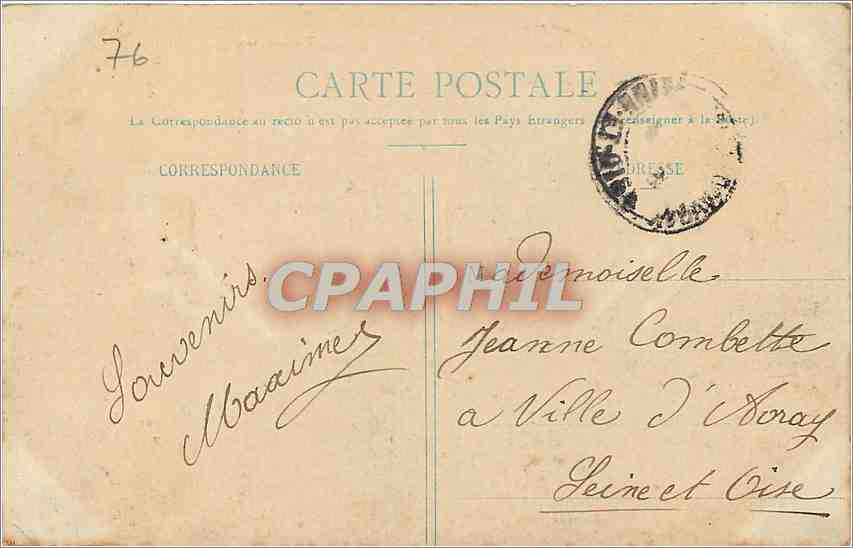 76
CARTE POSTALE
La Correspondance au recto n'est pas acceptée par tous les Pays Etrangers enseigner à la Poste).
CORRESPONDANCE
DRESSE
Souvenirs.
Maxime
Mademoiselle
Jeanne Combette
a Ville d'Avray
Seine et Oise
CPAPHIL